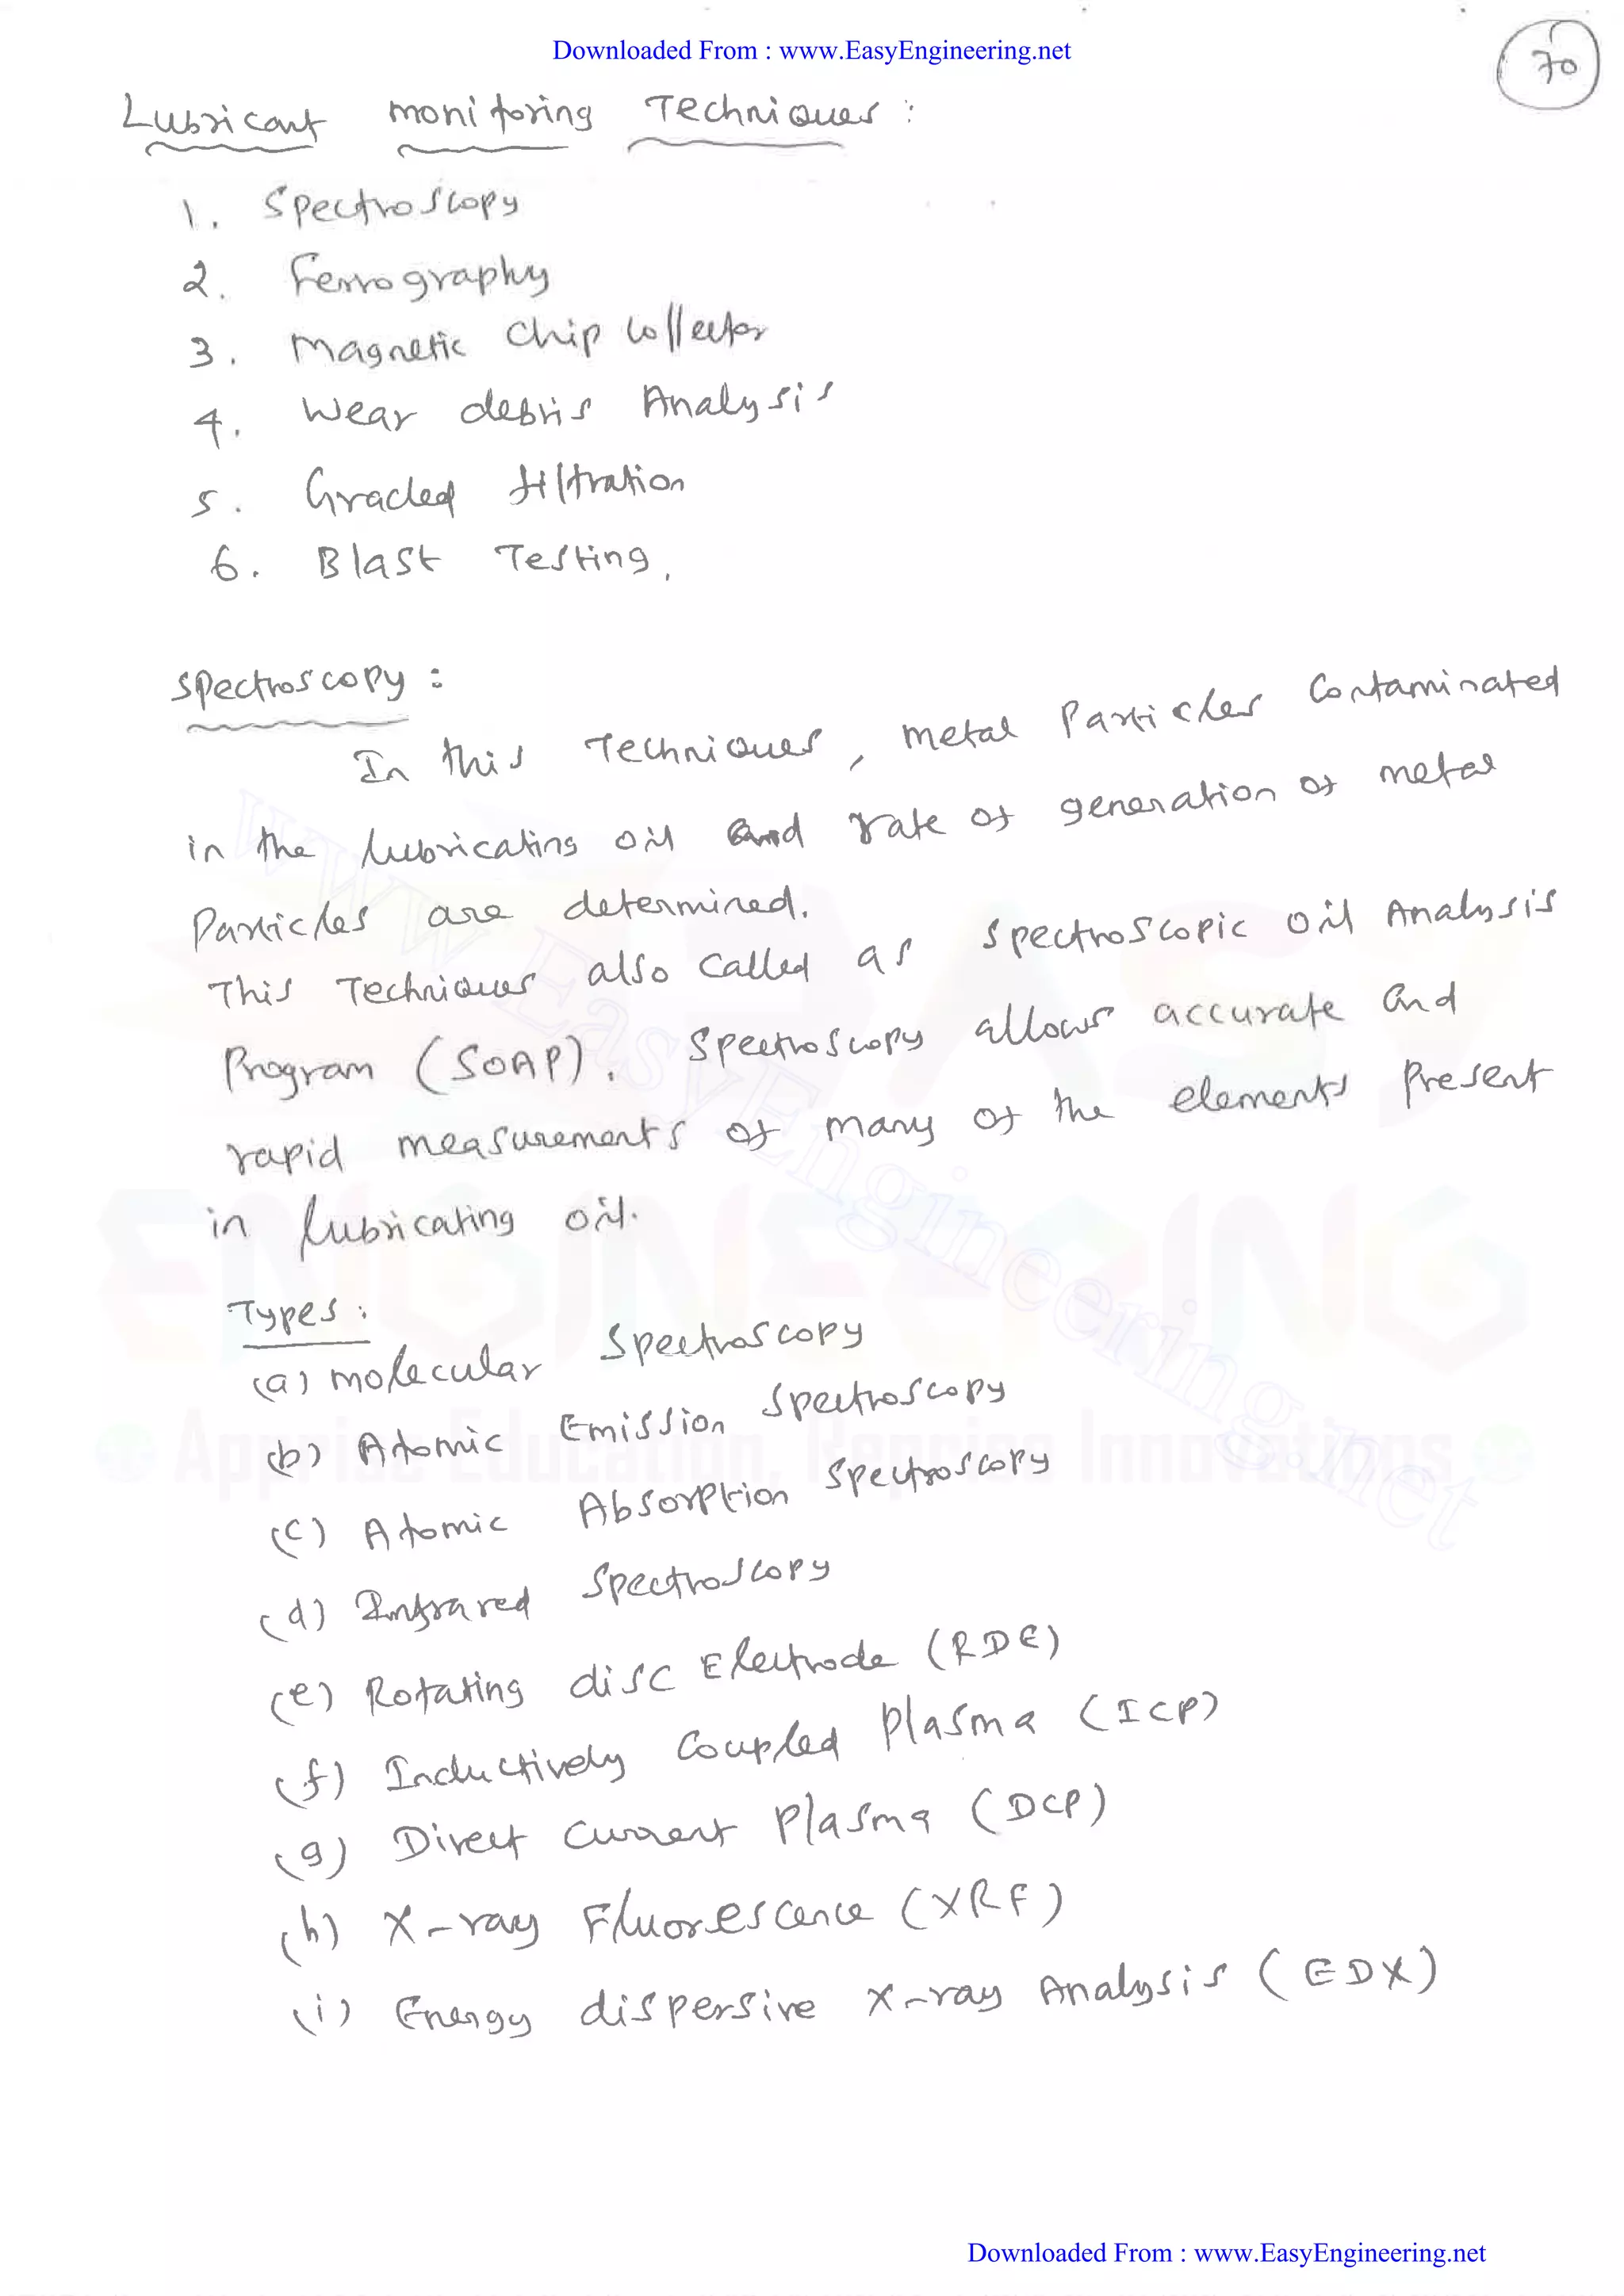 Downloaded From : www.EasyEngineering.net
70
Lubricant monitoring Techniques :
1. Spectroscopy
2. Ferrography
3. Magnetic chip collector
4. Wear debris Analysis
5. Graded filtration
6. Blast Testing.
Spectroscopy :
In this Techniques, metal Particles Contaminated
in the lubricating oil and rate of generation of metal
Particles are determined.
This Techniques also called as Spectroscopic oil Analysis
Program (SOAP). Spectroscopy allows accurate and
rapid measurements of many of the elements Present
in lubricating oil.
Types :
(a) molecular Spectroscopy
(b) Atomic Emission Spectroscopy
(c) Atomic Absorption Spectroscopy
(d) Infrared Spectroscopy
(e) Rotating disc Electrode (RDE)
(f) Inductively Coupled Plasma (ICP)
(g) Direct Current Plasma (DCP)
(h) X-ray Fluorescence (XRF)
(i) Energy dispersive X-ray Analysis (EDX)
www.EasyEngineering.net
EASY
ENGINEERING
Apprise Education, Reprise Innovations
Downloaded From : www.EasyEngineering.net